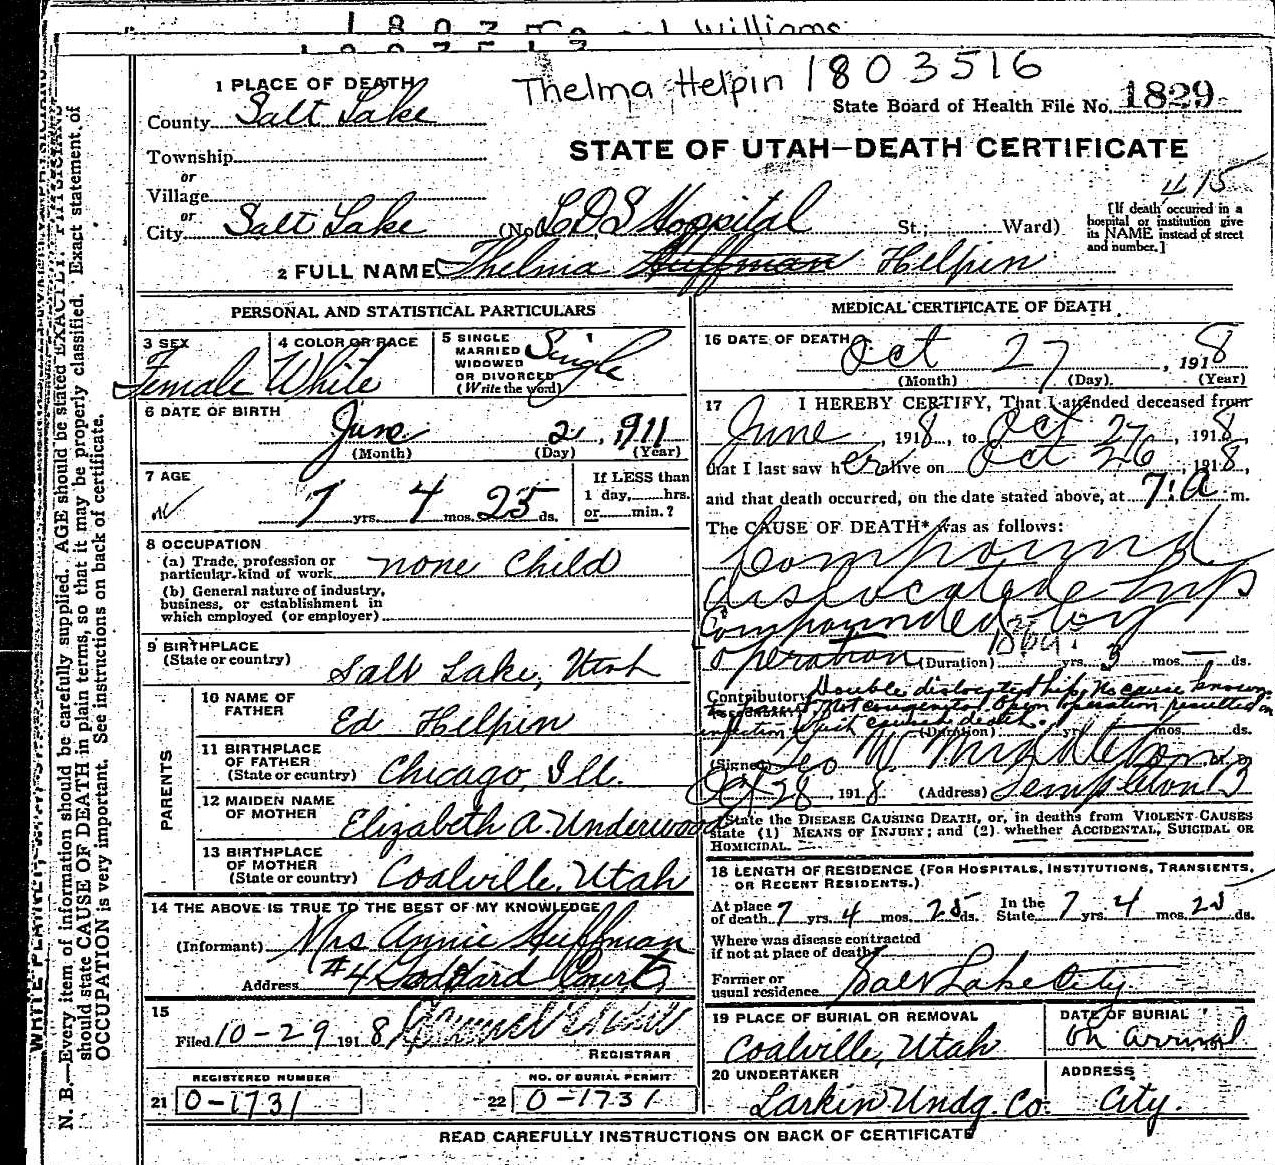 Williams
Thelma Helpin 1803516
1 PLACE OF DEATH
State Board of Health File No. 1829
County Salt Lake
STATE OF UTAH—DEATH CERTIFICATE
Township
or
Village
or
City Salt Lake (No. LDS Hospital St.; Ward)
[If death occurred in a hospital or institution give its NAME instead of street and number.]
2 FULL NAME Thelma Huffman Helpin
PERSONAL AND STATISTICAL PARTICULARS
3 SEX Female
4 COLOR OR RACE White
5 SINGLE MARRIED WIDOWED OR DIVORCED (Write the word) Single
6 DATE OF BIRTH
June 2, 1911
(Month) (Day) (Year)
7 AGE
7 yrs. 4 mos. 25 ds.
If LESS than 1 day, hrs. or min.?
8 OCCUPATION
(a) Trade, profession or particular kind of work none Child
(b) General nature of industry, business, or establishment in which employed (or employer)
9 BIRTHPLACE
(State or country) Salt Lake, Utah
PARENTS
10 NAME OF FATHER Ed Helpin
11 BIRTHPLACE OF FATHER (State or country) Chicago, Ill.
12 MAIDEN NAME OF MOTHER Elizabeth A. Underwood
13 BIRTHPLACE OF MOTHER (State or country) Coalville, Utah
14 THE ABOVE IS TRUE TO THE BEST OF MY KNOWLEDGE
(Informant) Mrs Annie Huffman
Address #4 Goddard Court
15
Filed 10-29 1918
REGISTRAR
REGISTERED NUMBER
21 0-1731
NO. OF BURIAL PERMIT
22 0-1731
MEDICAL CERTIFICATE OF DEATH
16 DATE OF DEATH Oct 27, 1918
(Month) (Day) (Year)
17 I HEREBY CERTIFY, That I attended deceased from
June, 1918, to Oct 27, 1918
that I last saw her alive on Oct 26, 1918,
and that death occurred, on the date stated above, at 7:a m.
The CAUSE OF DEATH* was as follows:
Compound
dislocated hip
Compounded by
operation (Duration) yrs. 3 mos. ds.
Contributory Double dislocated hip, No cause known
to parent. Not congenital. Open operation resulted in
infection which caused death. (Duration) yrs. mos. ds.
(Signed) Geo W Middleton M. D.
Oct 28, 1918 (Address) Templeton B
*State the DISEASE CAUSING DEATH, or, in deaths from VIOLENT CAUSES
state (1) MEANS OF INJURY; and (2) whether ACCIDENTAL, SUICIDAL OR
HOMICIDAL.
18 LENGTH OF RESIDENCE (FOR HOSPITALS, INSTITUTIONS, TRANSIENTS, OR RECENT RESIDENTS.)
At place of death 7 yrs. 4 mos. 25 ds. In the State 7 yrs. 4 mos. 25 ds.
Where was disease contracted if not at place of death?
Former or usual residence Salt Lake City
19 PLACE OF BURIAL OR REMOVAL
Coalville, Utah
DATE OF BURIAL
On arrival
20 UNDERTAKER
Larkin Undg. Co.
ADDRESS
City.
READ CAREFULLY INSTRUCTIONS ON BACK OF CERTIFICATE
N. B.—Every item of information should be carefully supplied. AGE should be stated EXACTLY. PHYSICIANS
should state CAUSE OF DEATH in plain terms, so that it may be properly classified. Exact statement of
OCCUPATION is very important. See instructions on back of certificate.